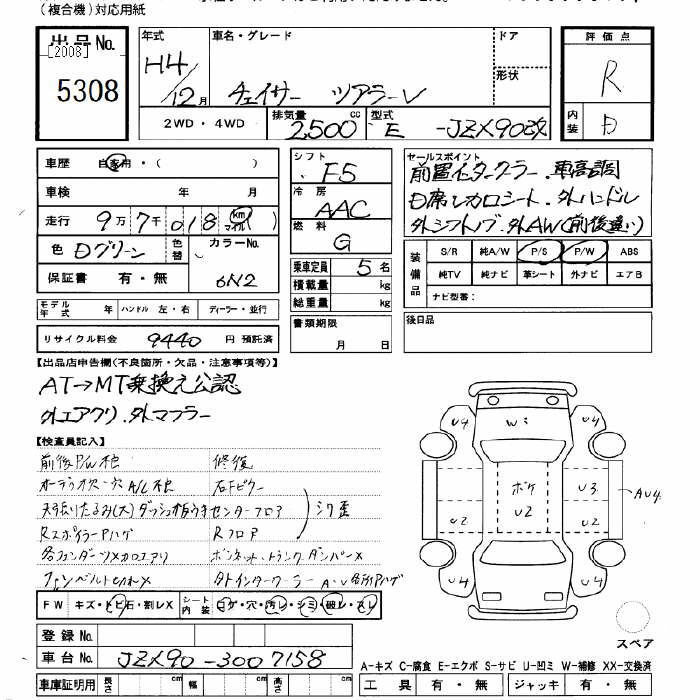 (複合機)対応用紙
出品No.
[2008]
5308
年式
H4/12月
車名・グレード
チェイサー ツアラーV
ドア
形状
2WD・4WD
排気量
2,500cc
型式
E -JZX90改
評価点
R
内装
D
車歴 自家用・( )
車検 年 月
走行 9万7千018 km マイル
色 Dグリーン 色替 カラーNo. 6N2
保証書 有・無
モデル年式 年 ハンドル 左・右 ディーラー・並行
リサイクル料金 9440円 預託済
シフト F5
冷房 AAC
燃料 G
乗車定員 5名
積載量 kg
総重量 kg
書類期限
月 日
セールスポイント
前置インタークーラー.車高調
D席レカロシート.外ハンドル
外シフトノブ.外AW(前後違い)
装備品
S/R 純A/W P/S P/W ABS
純TV 純ナビ 革シート 外ナビ エアB
ナビ型番:
後日品
【出品店申告欄(不良箇所・欠品・注意事項等)】
AT→MT乗換え公認
外エアクリ.外マフラー
【検査員記入】
前後P/W
修復
右Fピラー
センターフロア
Rスポイラー
Rフロア
ボンネット.トランクダンパー✕
FW キズ・トビ石・割レX シート内装 コゲ・穴・汚レ・シミ・破レ・スレ
登録No.
車台No. JZX90-3007158
車庫証明用 長さ cm 幅 cm 高さ cm
U4
W3
U4
ボケ
U2
U3
AU4
U2
U2
U4
U4
スペア
A-キズ C-腐食 E-エクボ S-サビ U-凹ミ W-補修 XX-交換済
工具 有・無 ジャッキ 有・無